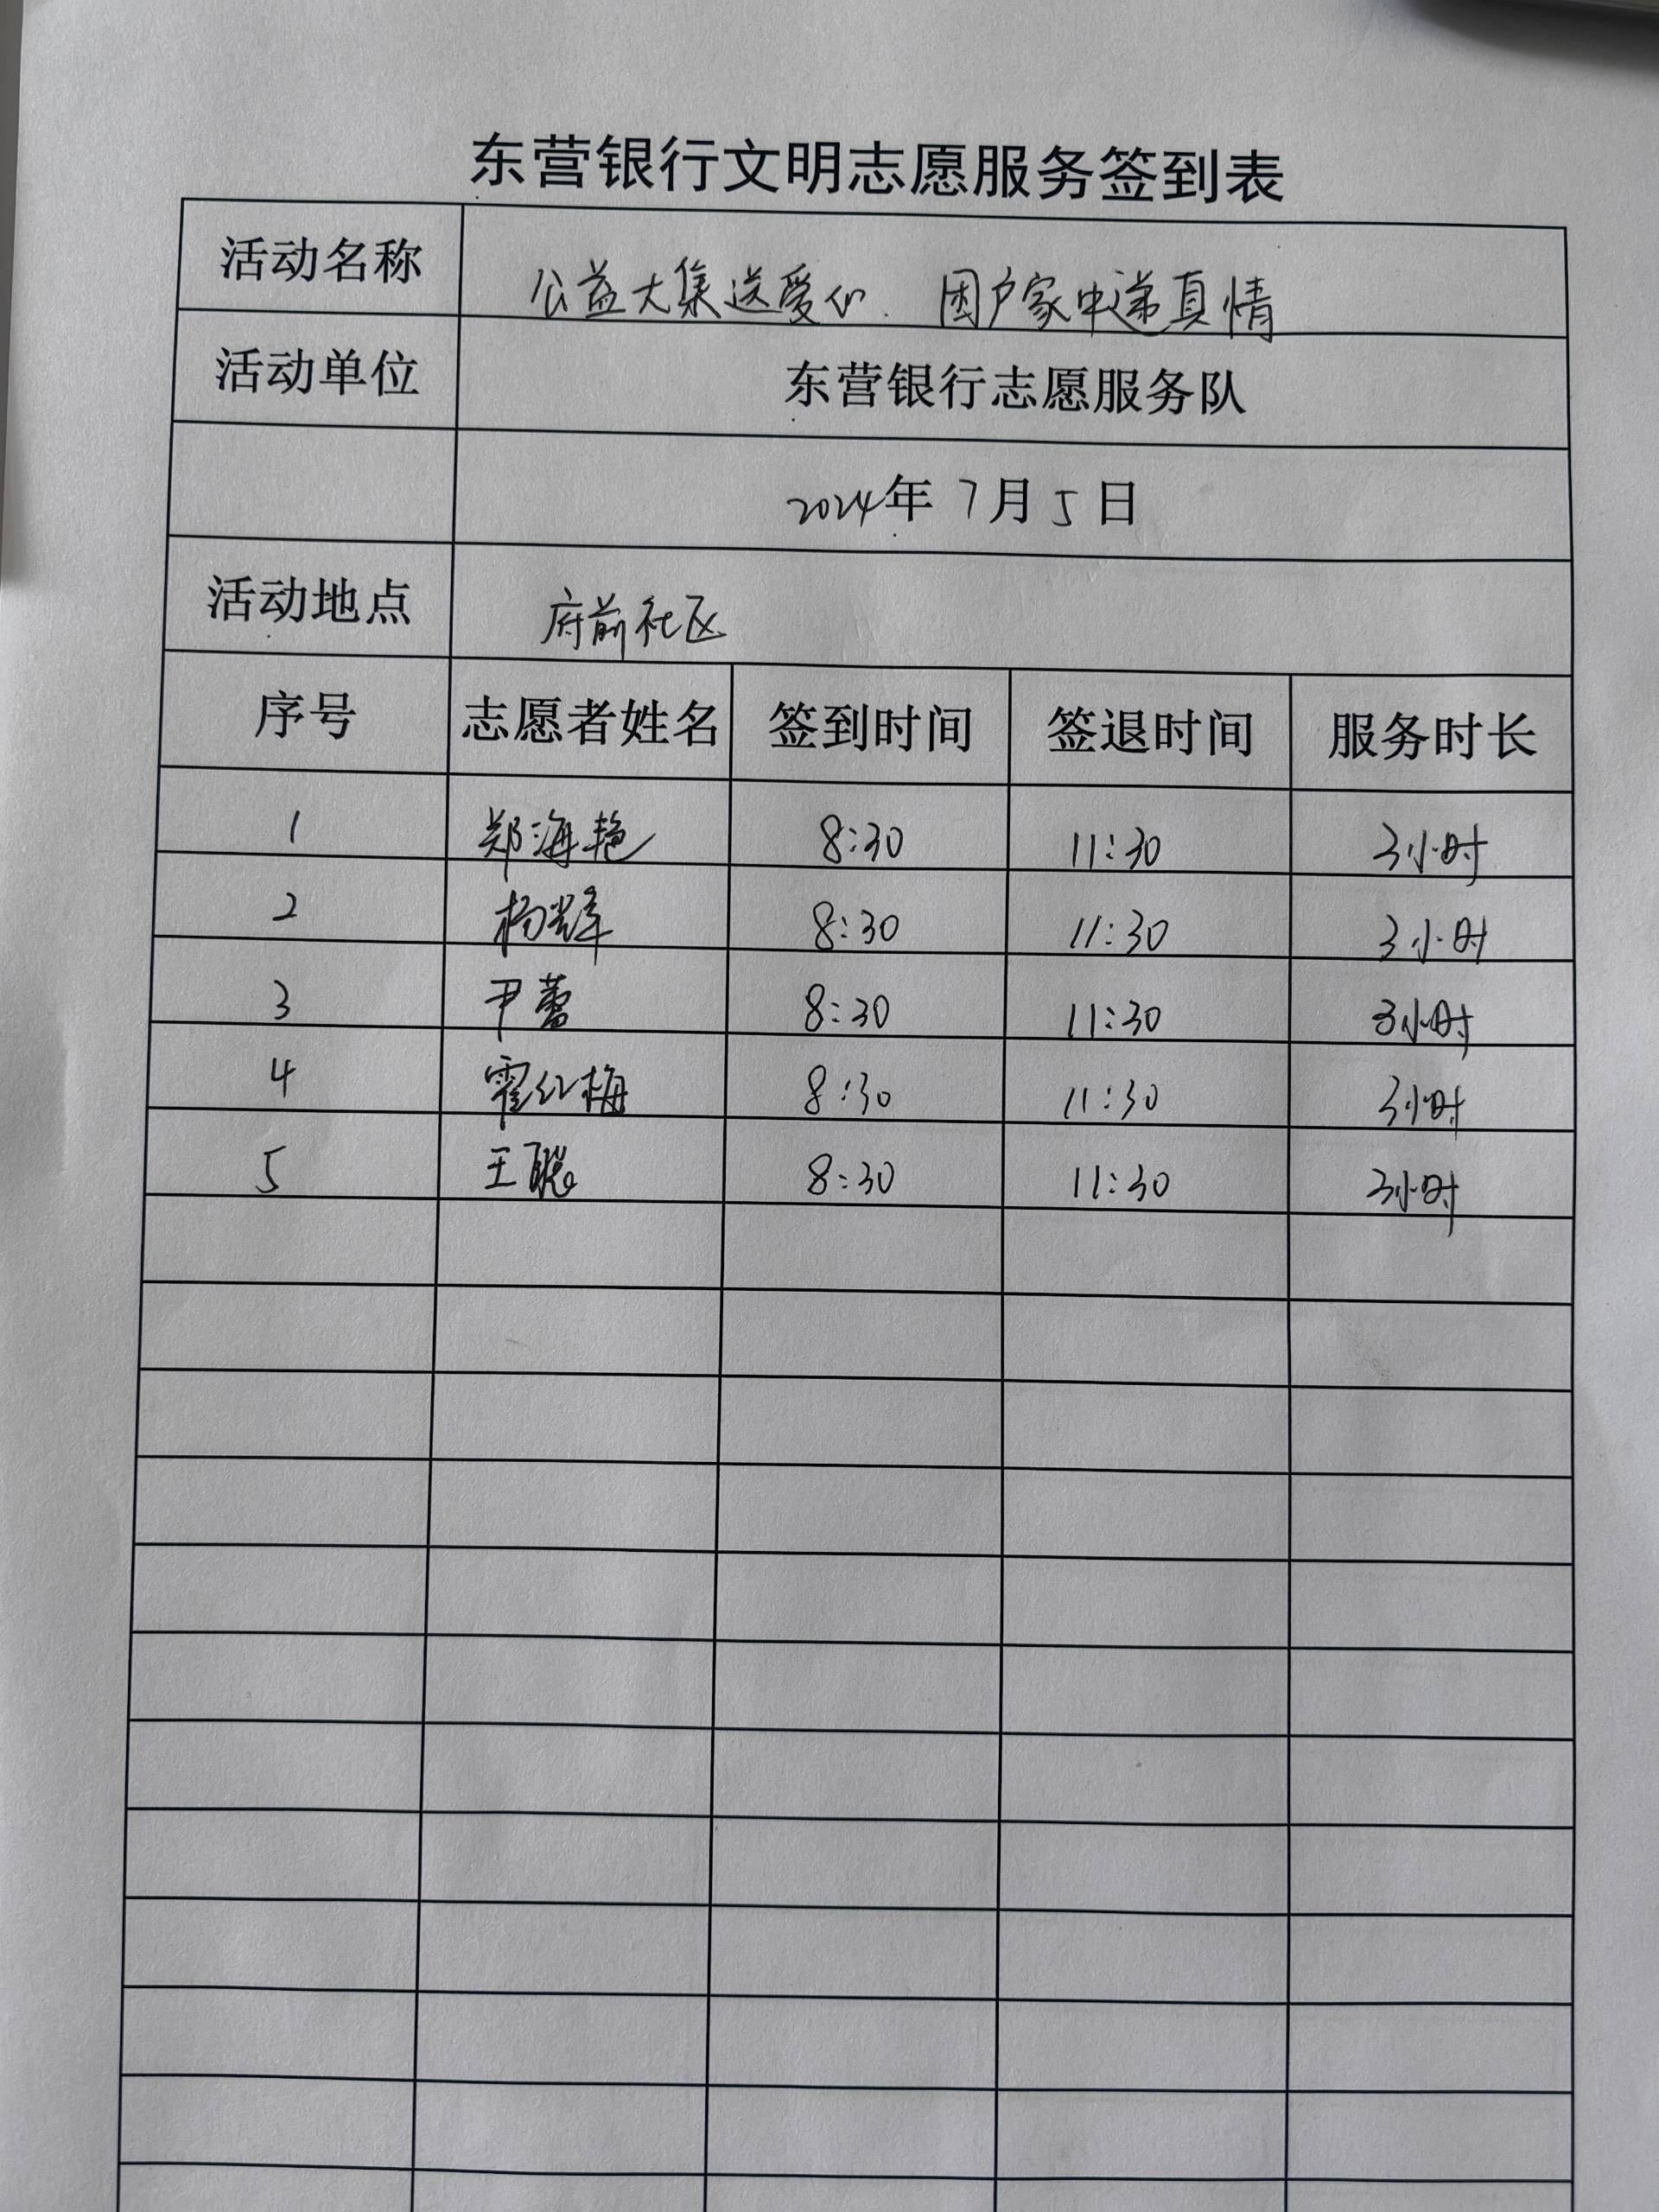 东营银行文明志愿服务签到表
活动名称 公益大集送爱心. 困户家中递真情
活动单位 东营银行志愿服务队
2024年7月5日
活动地点 府前社区
序号 志愿者姓名 签到时间 签退时间 服务时长
1 郑海艳 8:30 11:30 3小时
2 杨辉 8:30 11:30 3小时
3 尹蕾 8:30 11:30 3小时
4 霍红梅 8:30 11:30 3小时
5 王聪 8:30 11:30 3小时